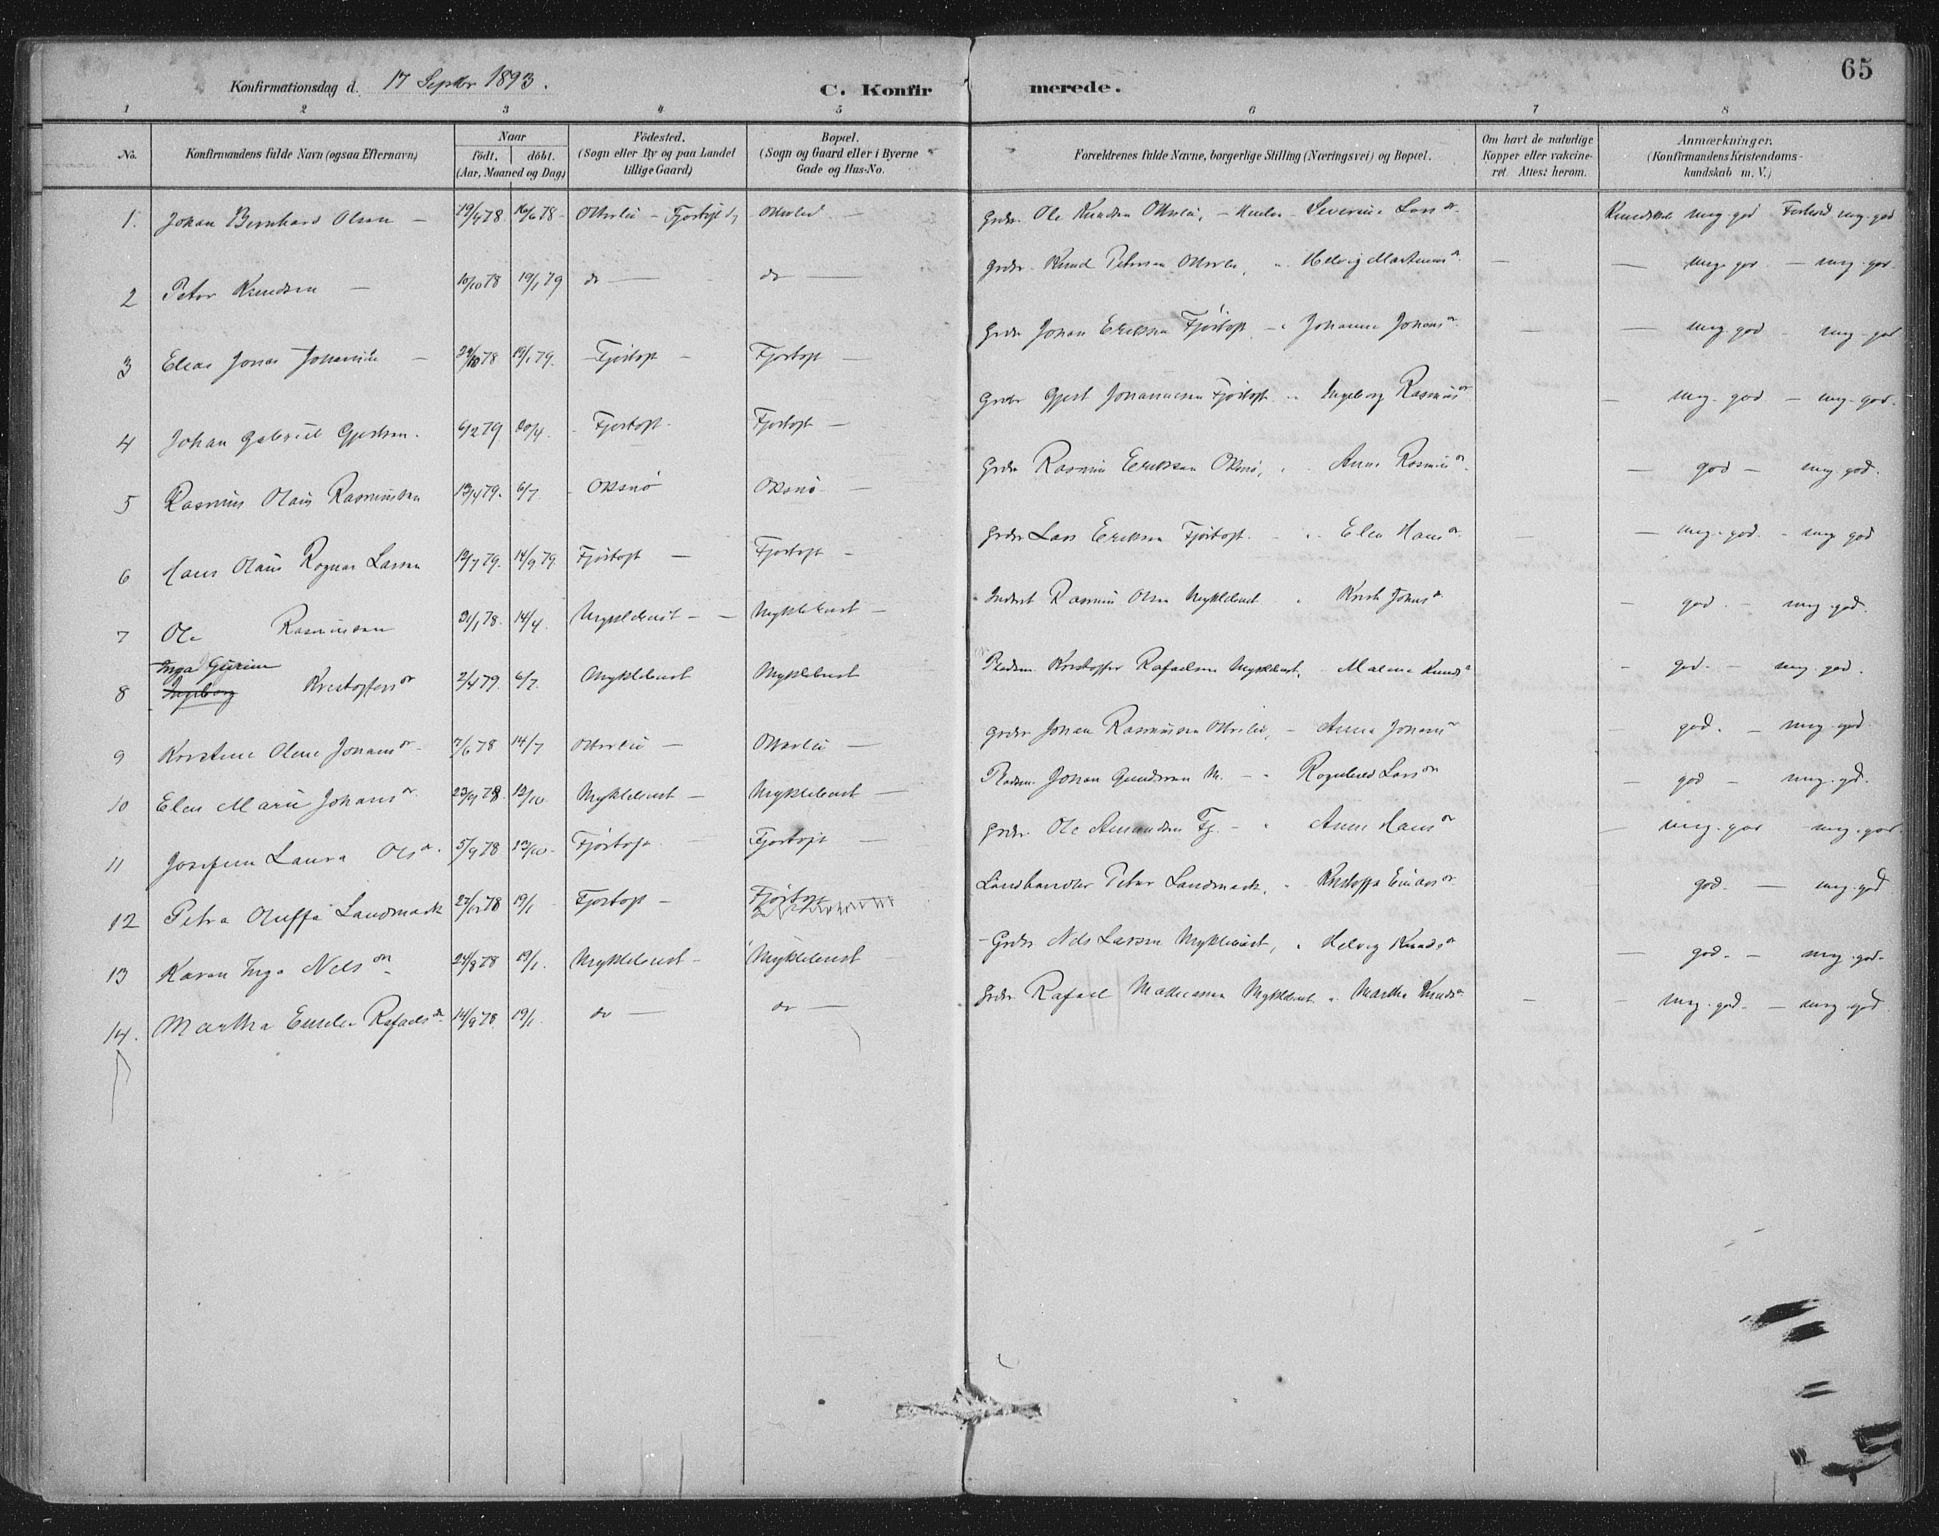 65
Konfirmationsdag d. 17 Septbr 1893.
C. Konfirmerede.
1 2 3 4 5 6 7 8
No.
Konfirmandens fulde Navn (ogsaa Efternavn)
Naar
födt. döbt.
(Aar, Maaned og Dag)
Födested.
(Sogn eller By og paa Landet tillige Gaard)
Bopæl.
(Sogn og Gaard eller i Byerne Gade og Hus-No.
Forældrenes fulde Navne, borgerlige Stilling (Næringsvei) og Bopæl.
Om havt de naturlige Kopper eller vakcineret. Attest herom.
Anmærkninger.
(Konfirmandens Kristendomskundskab m. V.)
1. Johan Bernhard Olsen — 19/4 78 16/6 78 Otterlei — Otterlei — Grdbr. Ole Knudsen Otterlei, — Severine Larsdr. Kundskab meg. god Forhold meg. god
2 Peter Knudsen — 10/10 78 19/1 79 do — do — Grdbr. Knud Petersen Otterlei, " Helvig Martinusdr. — — meg. god — meg. god.
3 Elias Jonas Johansen — 10 78 19/1 79. Fjörtoft — Fjörtoft — Grdbr Johan Eriksen Fjörtoft — " Johanne Johansdr. — — meg. god — meg. god
4 Johan Gabriel Gjertsen. 6/2 79 20/4. Fjörtoft. Fjörtoft — Grdbr Gjert Johannesen Fjörtoft " Ingeborg Rasmusdr — meg. god — meg. god.
5 Rasmus Olaus Rasmussen 13/4 79. 6/7. Oksnö Oksnö — Grdbr Rasmus Eriksen Oksnö, " Anne Rasmusdr. — god — meg god.
6 Hans Olaus Ragnar Larsen 12/7 79. 14/9 79. Fjörtoft — Fjörtoft — Grdbr Lars Eriksen Fjörtoft. " Elen Hansdr. — — meg. god. — meg god
7 Ole Rasmussen 31/1 78. 14/4. Myklebust — Myklebust — Inderst Rasmus Olsen Myklebust " Johnsdr — god. — meg. god.
8 Inga Gurine Ingeborg Kristoffersdr 2/4 79. 6/7. Myklebust Myklebust Pladsm. Kristoffer Rafaelsen Myklebust, — Malene Knudsdr — god. — meg. god.
9 Kirstine Oline Johansdr. 7/6 78 14/7 Otterlei — Otterlei — Grdbr Johan Rasmussen Otterlei, — Anna Johansdr — god. — meg. god
10 Elen Marie Johansdr. 23/9 78. 13/10. Myklebust — Myklebust — Pladsm. Johan M. — " Ragnhild Larsdr — god — meg. gd.
11 Josefine Laura Olsdr. 5/9 78 13/10. Fjörtoft — Fjörtoft — Grdbr. Ole Amundsen Fj. — " Anne Hansdr — meg. god meg. god
12 Petra Oluffa Landmark 78 19/1 Fjörtoft — Fjörtoft Landhandler Peter Landmark, " — god. — meg. god
13 Karen Inga Nelsdr. 24/8 78 19/1. Myklebust — Myklebust — Grdbr Nels Larsen Myklebust, " Helvig Knudsdr — god. — meg. god.
14. Martha Emelie Rafaelsdr. 14/9 78. 19/1. do — do — Grdbr. Rafael Myklebust " Martha Knudsdr — — meg. god. — meg. god